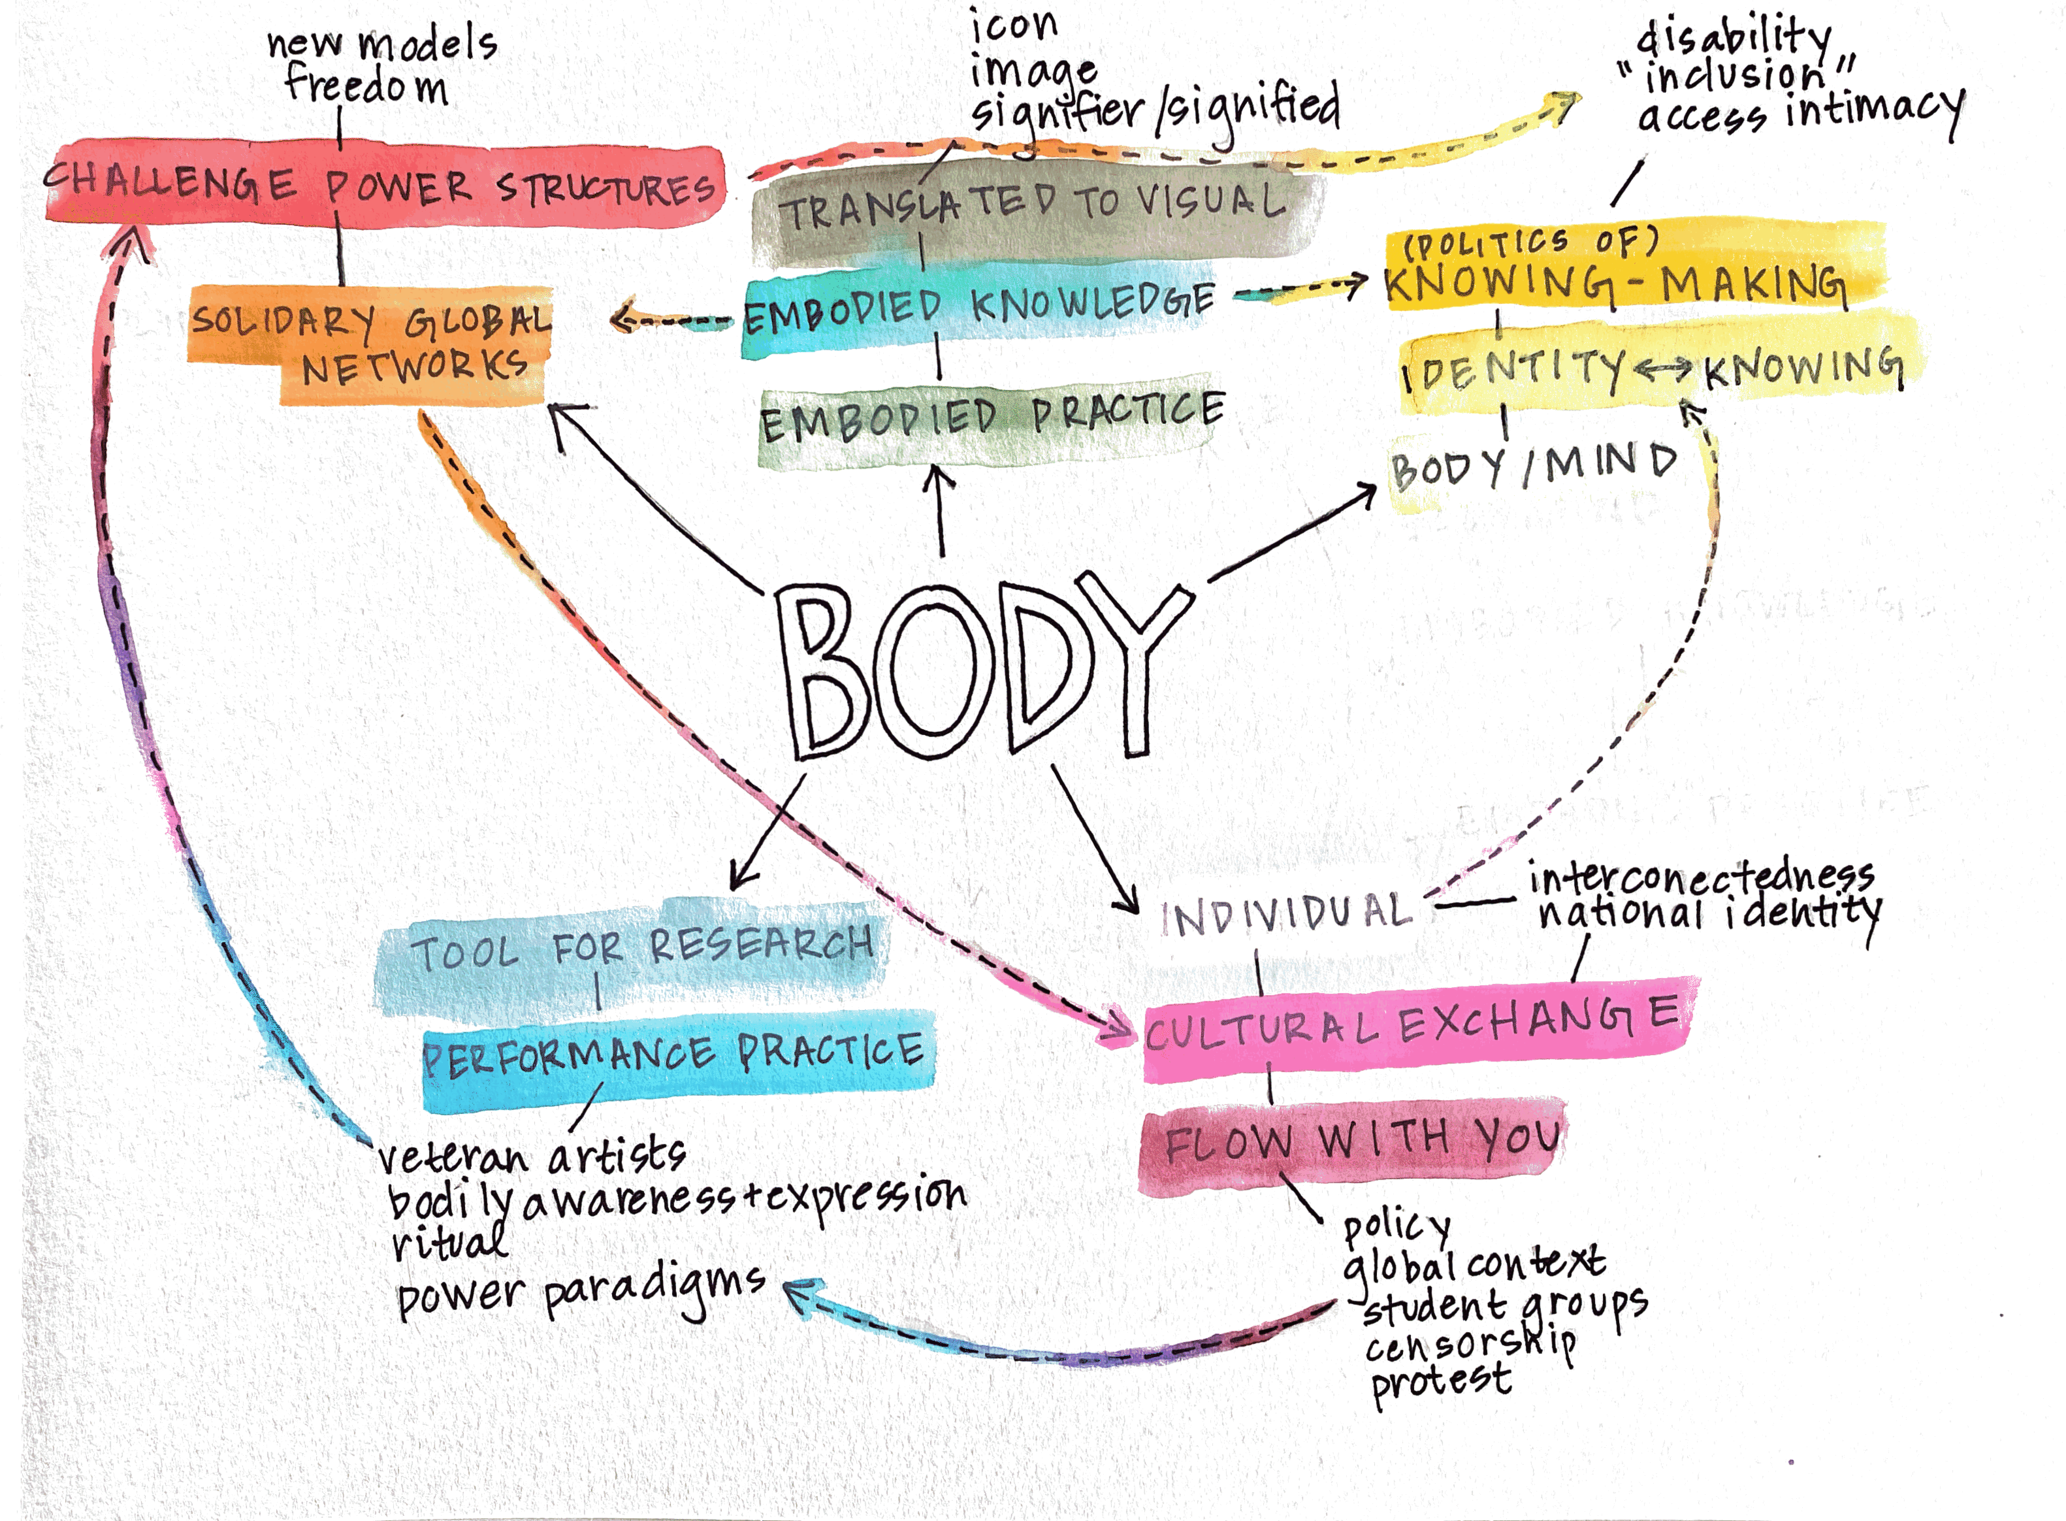 new models
freedom
CHALLENGE POWER STRUCTURES
SOLIDARY GLOBAL
NETWORKS
icon
image
signifier/signified
TRANSLATED TO VISUAL
EMBODIED KNOWLEDGE
EMBODIED PRACTICE
disability
"inclusion"
access intimacy
(POLITICS OF)
KNOWING-MAKING
IDENTITY ↔ KNOWING
BODY/MIND
BODY
TOOL FOR RESEARCH
PERFORMANCE PRACTICE
veteran artists
bodily awareness+expression
ritual
power paradigms
INDIVIDUAL
interconectedness
national identity
CULTURAL EXCHANGE
FLOW WITH YOU
policy
global context
student groups
censorship
protest